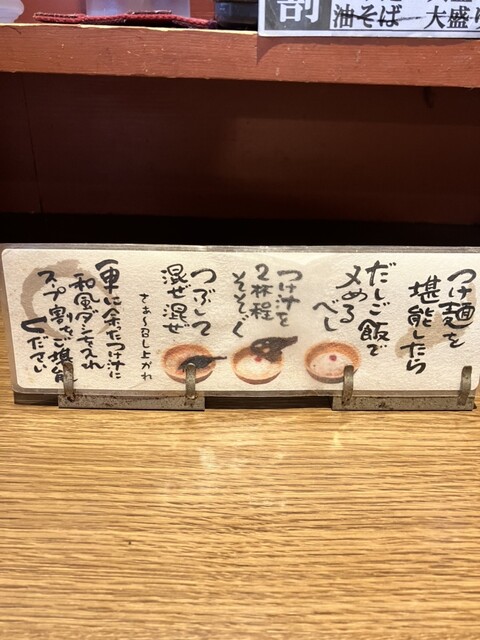 割
油そば 大盛り
つけ麺を
堪能したら
だしご飯で
〆めるべし
つけ汁を
2杯程
そそぐ
つぶして
混ぜ混ぜ
さぁ〜召し上がれ
更に余ったつけ汁に
和風ダシを入れ
スープ割りをご堪能
ください